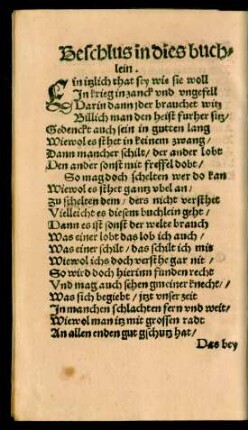 Beschlus in dies buch-
lein.
Ein itzlich that sey wie sie woll
In krieg in zanck vnd vngefell
Darin dann jder brauchet witz
Billich man den heist furher sitz
Gedenckt auch sein in gutten lang
Wiewol es sthet in keinem zwang/
Dann mancher schilt/ der ander lobt
Den ander sonst mit freffel dobt/
So mag doch schelten wer do kan
Wiewol es sthet gantz vbel an/
Zu schelten dem/ ders nicht versthet
Vielleicht es diesem buchlein geht/
Dann es ist sonst der welte brauch
Was einer lobt das lob ich auch/
Was einer schilt/ das schilt ich mit
Wiewol ichs doch versthe gar nit/
So wird doch hierinn funden recht
Vnd mag auch sehen gmeiner knecht/
Was sich begiebt/ jtzt vnser zeit
In manchen schlachten fern vnd weit/
Wiewol man itz mit grossen radt
An allen enden gut gschutz hat/
Das bey